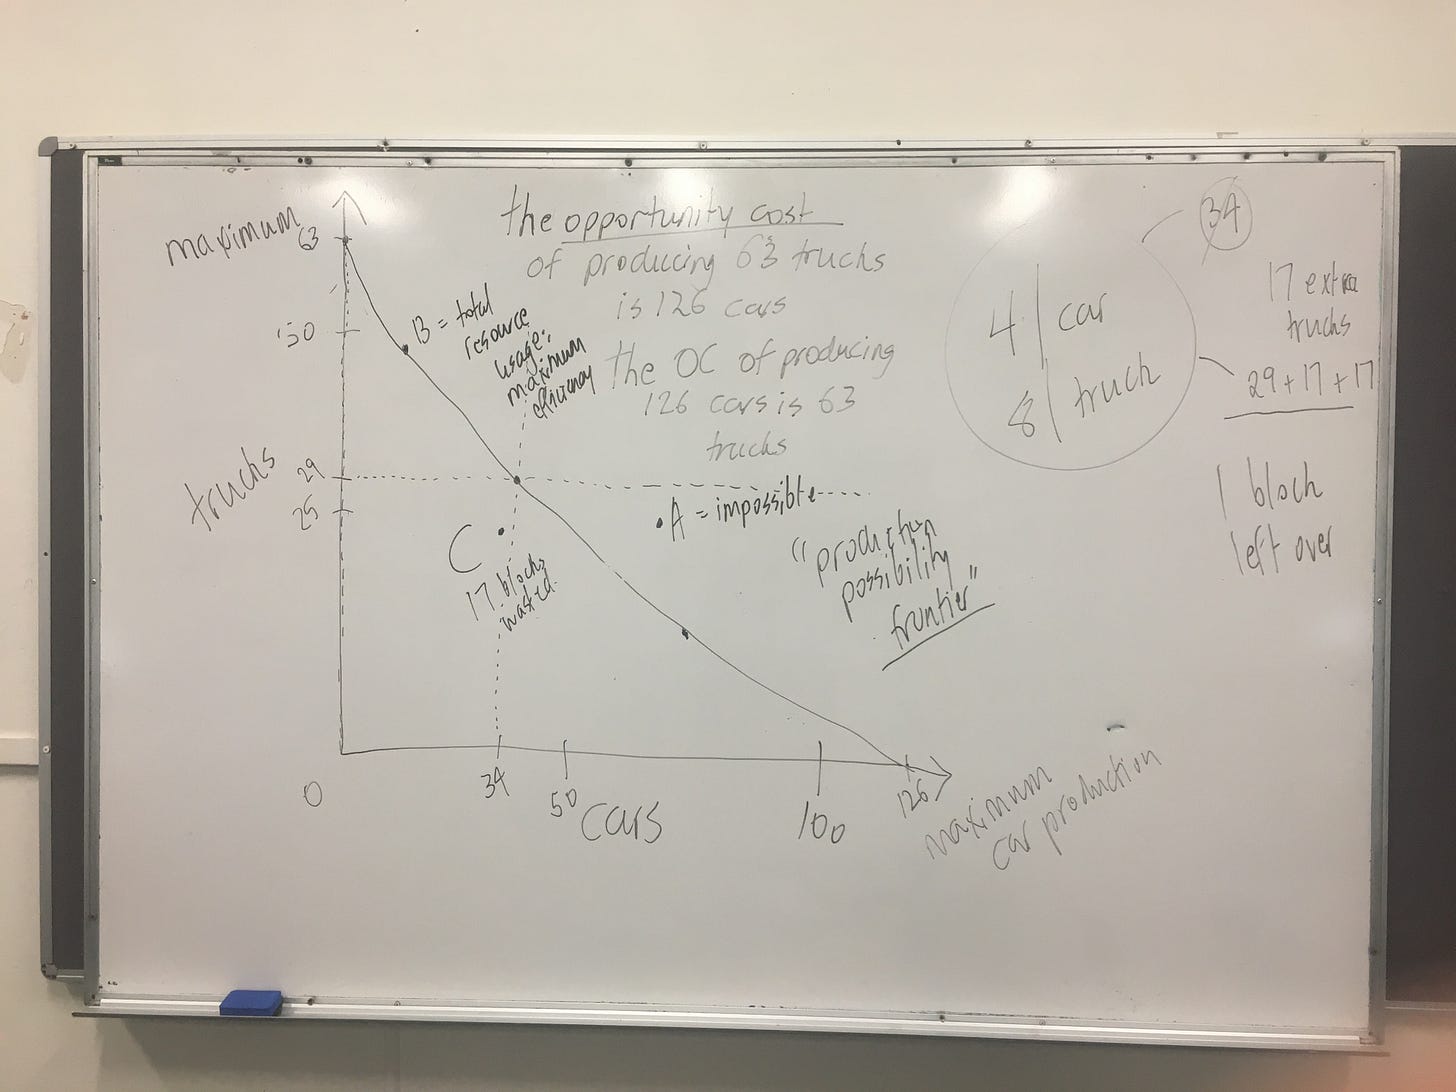 maximum 63
50
trucks
29
25
0
34
50
cars
100
126
maximum
car production
B = total
resource
usage;
maximum
efficiency
C
17 blocks
wasted
A = impossible
"production
possibility
frontier"
the opportunity cost
of producing 63 trucks
is 126 cars
the OC of producing
126 cars is 63
trucks
4 | car
8 | truck
34
17 extra
trucks
29 + 17 + 17
1 block
left over